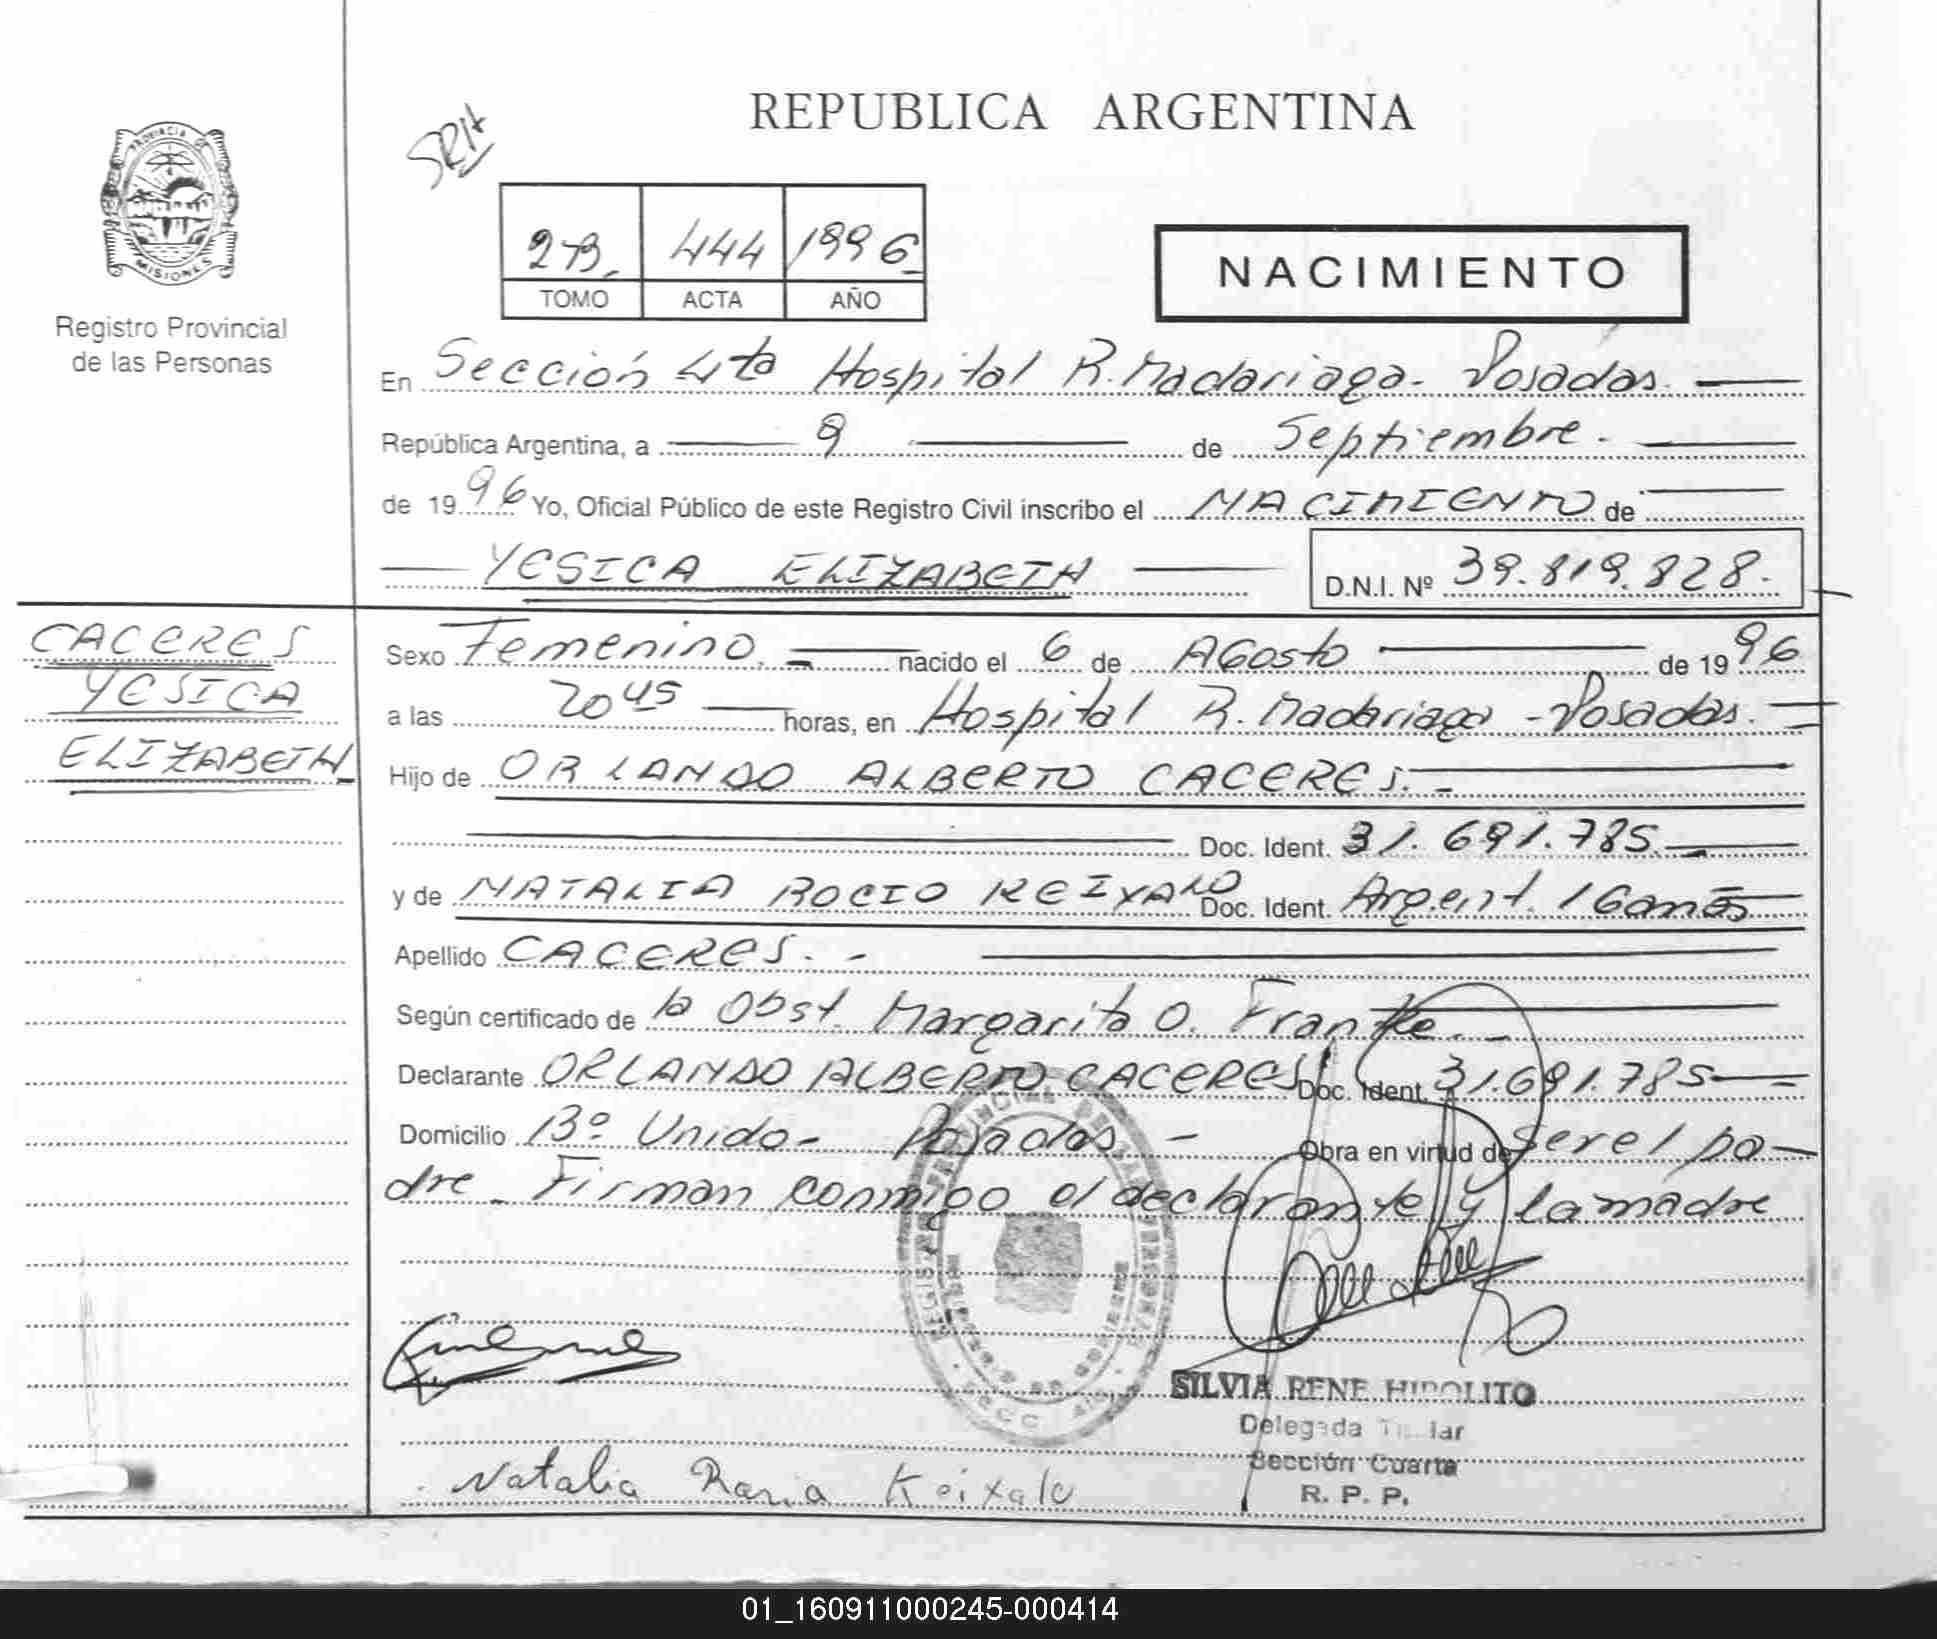 REPUBLICA ARGENTINA
SRH
PROVINCIA DE
MISIONES
Registro Provincial
de las Personas
2-B. 444 1996
TOMO ACTA AÑO
NACIMIENTO
En Sección 4ta Hospital R. Madariaga - Posadas.
República Argentina, a 9 de Septiembre.
de 1996 Yo, Oficial Público de este Registro Civil inscribo el NACIMIENTO de
YESICA ELIZABETH D.N.I. Nº 39.819.828.
CACERES
YESICA
ELIZABETH
Sexo Femenino. nacido el 6 de AGosto de 1996
a las 20 45 horas, en Hospital R. Madariaga - Posadas.
Hijo de ORLANDO ALBERTO CACERES.
Doc. Ident. 31.691.785
y de NATALIA ROCIO KEIXALO Doc. Ident. Argent. 16 años
Apellido CACERES.
Según certificado de la Obst. Margarita O. Franke.
Declarante ORLANDO ALBERTO CACERES Doc. Ident. 31.691.785
Domicilio Bº Unido - Posadas - Obra en virtud de ser el pa-
dre - Firman conmigo el declarante y la madre
SILVIA RENE HIPOLITO
Delegada Titular
Sección Cuarta
R. P. P.
Natalia Keixalo
01_160911000245-000414